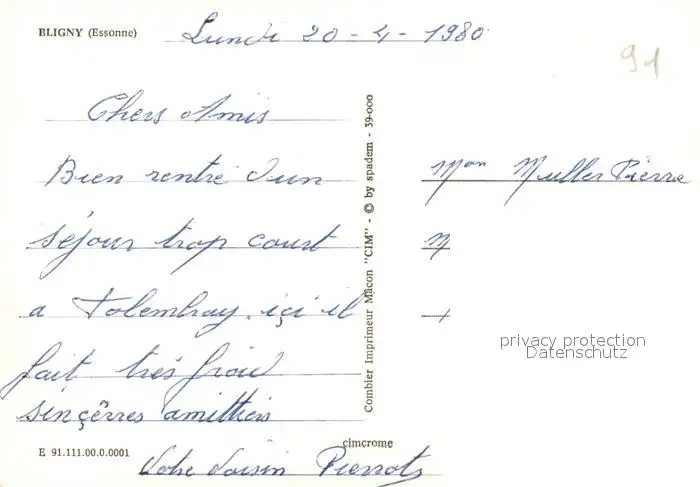 BLIGNY (Essonne)
Lundi 20 - 4 - 1980
91
Chers Amis
Bien rentré d'un
séjour trop court
a Folembray. içi il
fait très froid
sinçêrres amitties
Votre Voisin Pierrot
Mon Muller Pierre
M
Combier Imprimeur Mâcon "CIM" - © by spadem - 39-000
privacy protection
Datenschutz
E 91.111.00.0.0001
cimcrome